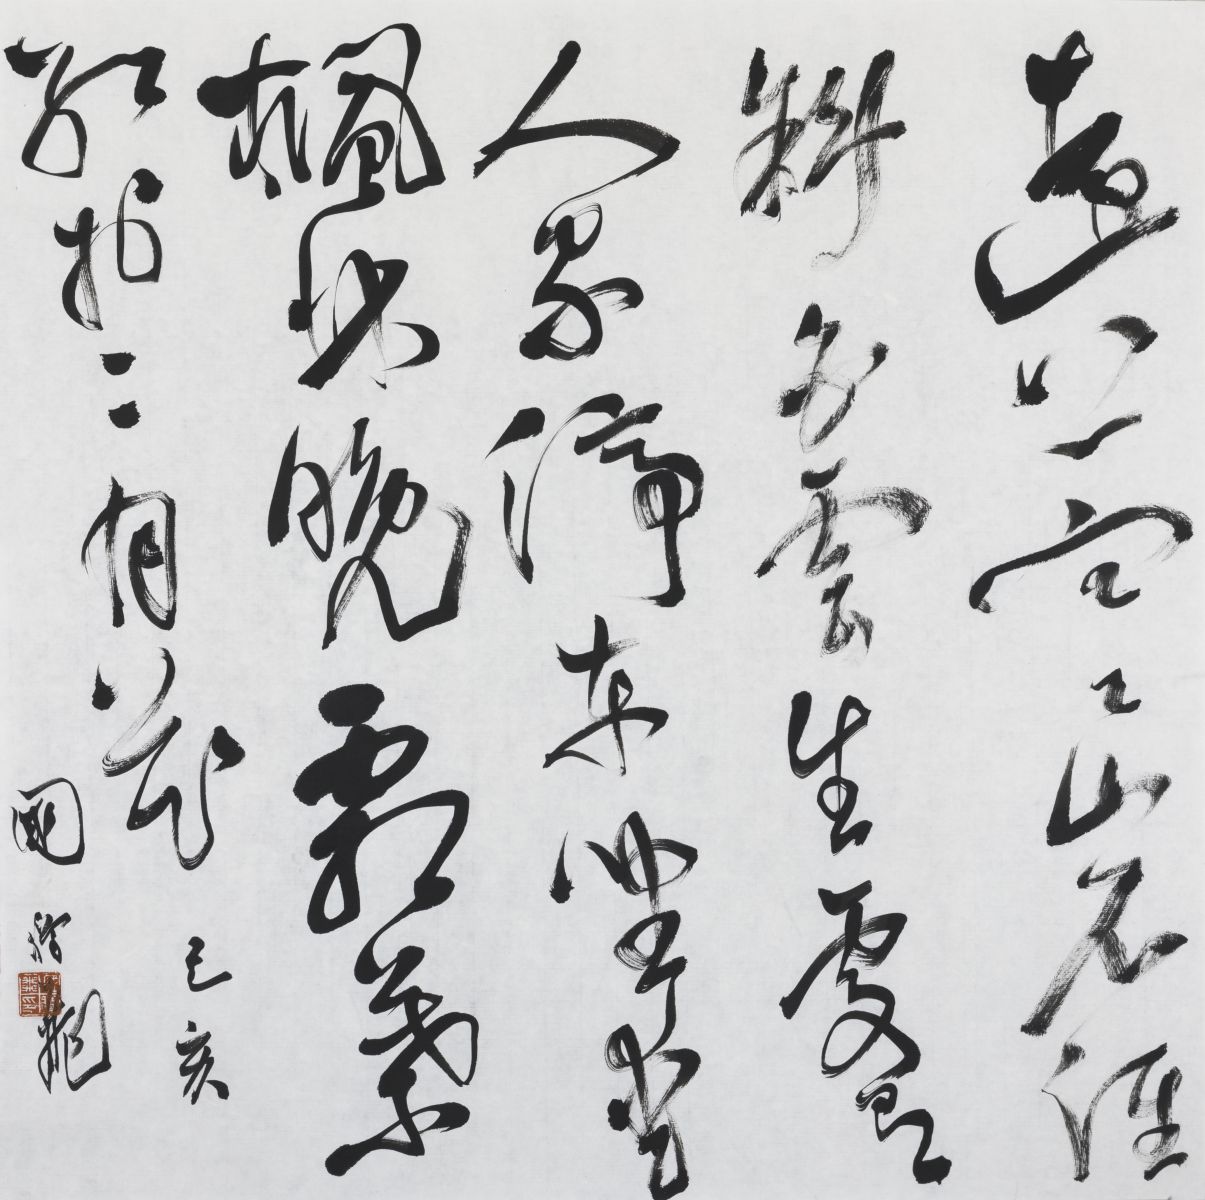 遠上寒山石徑
斜白雲生處有
人家停車坐愛
楓林晚霜葉
紅於二月花
己亥
國